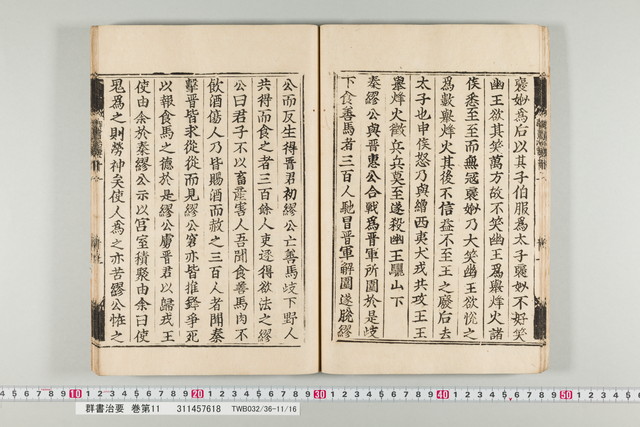 褒姒爲后以其子伯服爲太子褒姒不好笑
幽王欲其笑萬方故不笑幽王爲舉烽火諸
侯悉至至而無冦褒姒乃大笑幽王欲悅之
爲數舉烽火其後不信益不至王之廢后去
太子也申侯怒乃與繒西夷犬戎共攻王王
舉烽火徵兵兵莫至遂殺幽王驪山下
秦繆公與晋惠公合戰爲晋軍所圍於是歧
下食善馬者三百人馳冒晋軍解圍遂脫繆
公而反生得晋君初繆公亡善馬歧下野人
共得而食之者三百餘人吏逐得欲法之繆
公曰君子不以畜產害人吾聞食善馬肉不
飲酒傷人乃皆賜酒而赦之三百人者聞秦
擊晋皆求從從而見繆公窘亦皆推鋒爭死
以報食馬之德於是繆公虜晋君以歸戎王
使由余於秦繆公示以宮室積聚由余曰使
鬼爲之則勞神矣使人爲之亦苦繆公恠之
10 20 30 40 50
群書治要 巻第11 311457618 TWB032/36-11/16